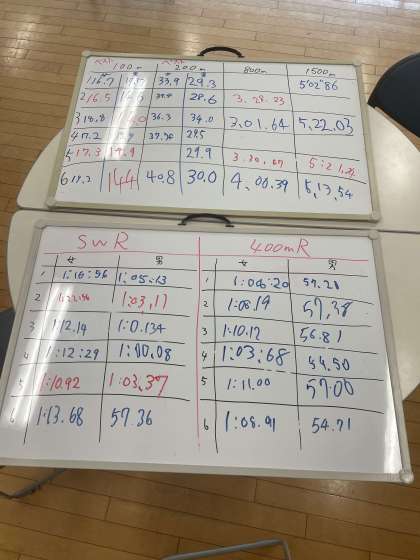 100m 200m 800m 1500m
1 16.7 33.9 29.3 5'02"86
2 16.5 28.6 3.28.23
3 18.8 36.3 34.0 3,01.64 5,22,03
4 17.2 285
5 17.3 29.9
6 14.4 40.8 30.0 4,00.39 5,13,54
SWR 400mR
女 男 女 男
1 1:16:56 1:05:13 1 1:06:20 57.21
2 1:03,11 2 1:08.19 57,38
3 1:12.14 1:0.134 3 1:10.17 56.81
4 1:12:29 1:00,08 4 1:03:68 54.50
5 1:10.92 1:03,37 5 1:11.00 57.00
6 1:13.68 57.36 6 1:08.91 54.71